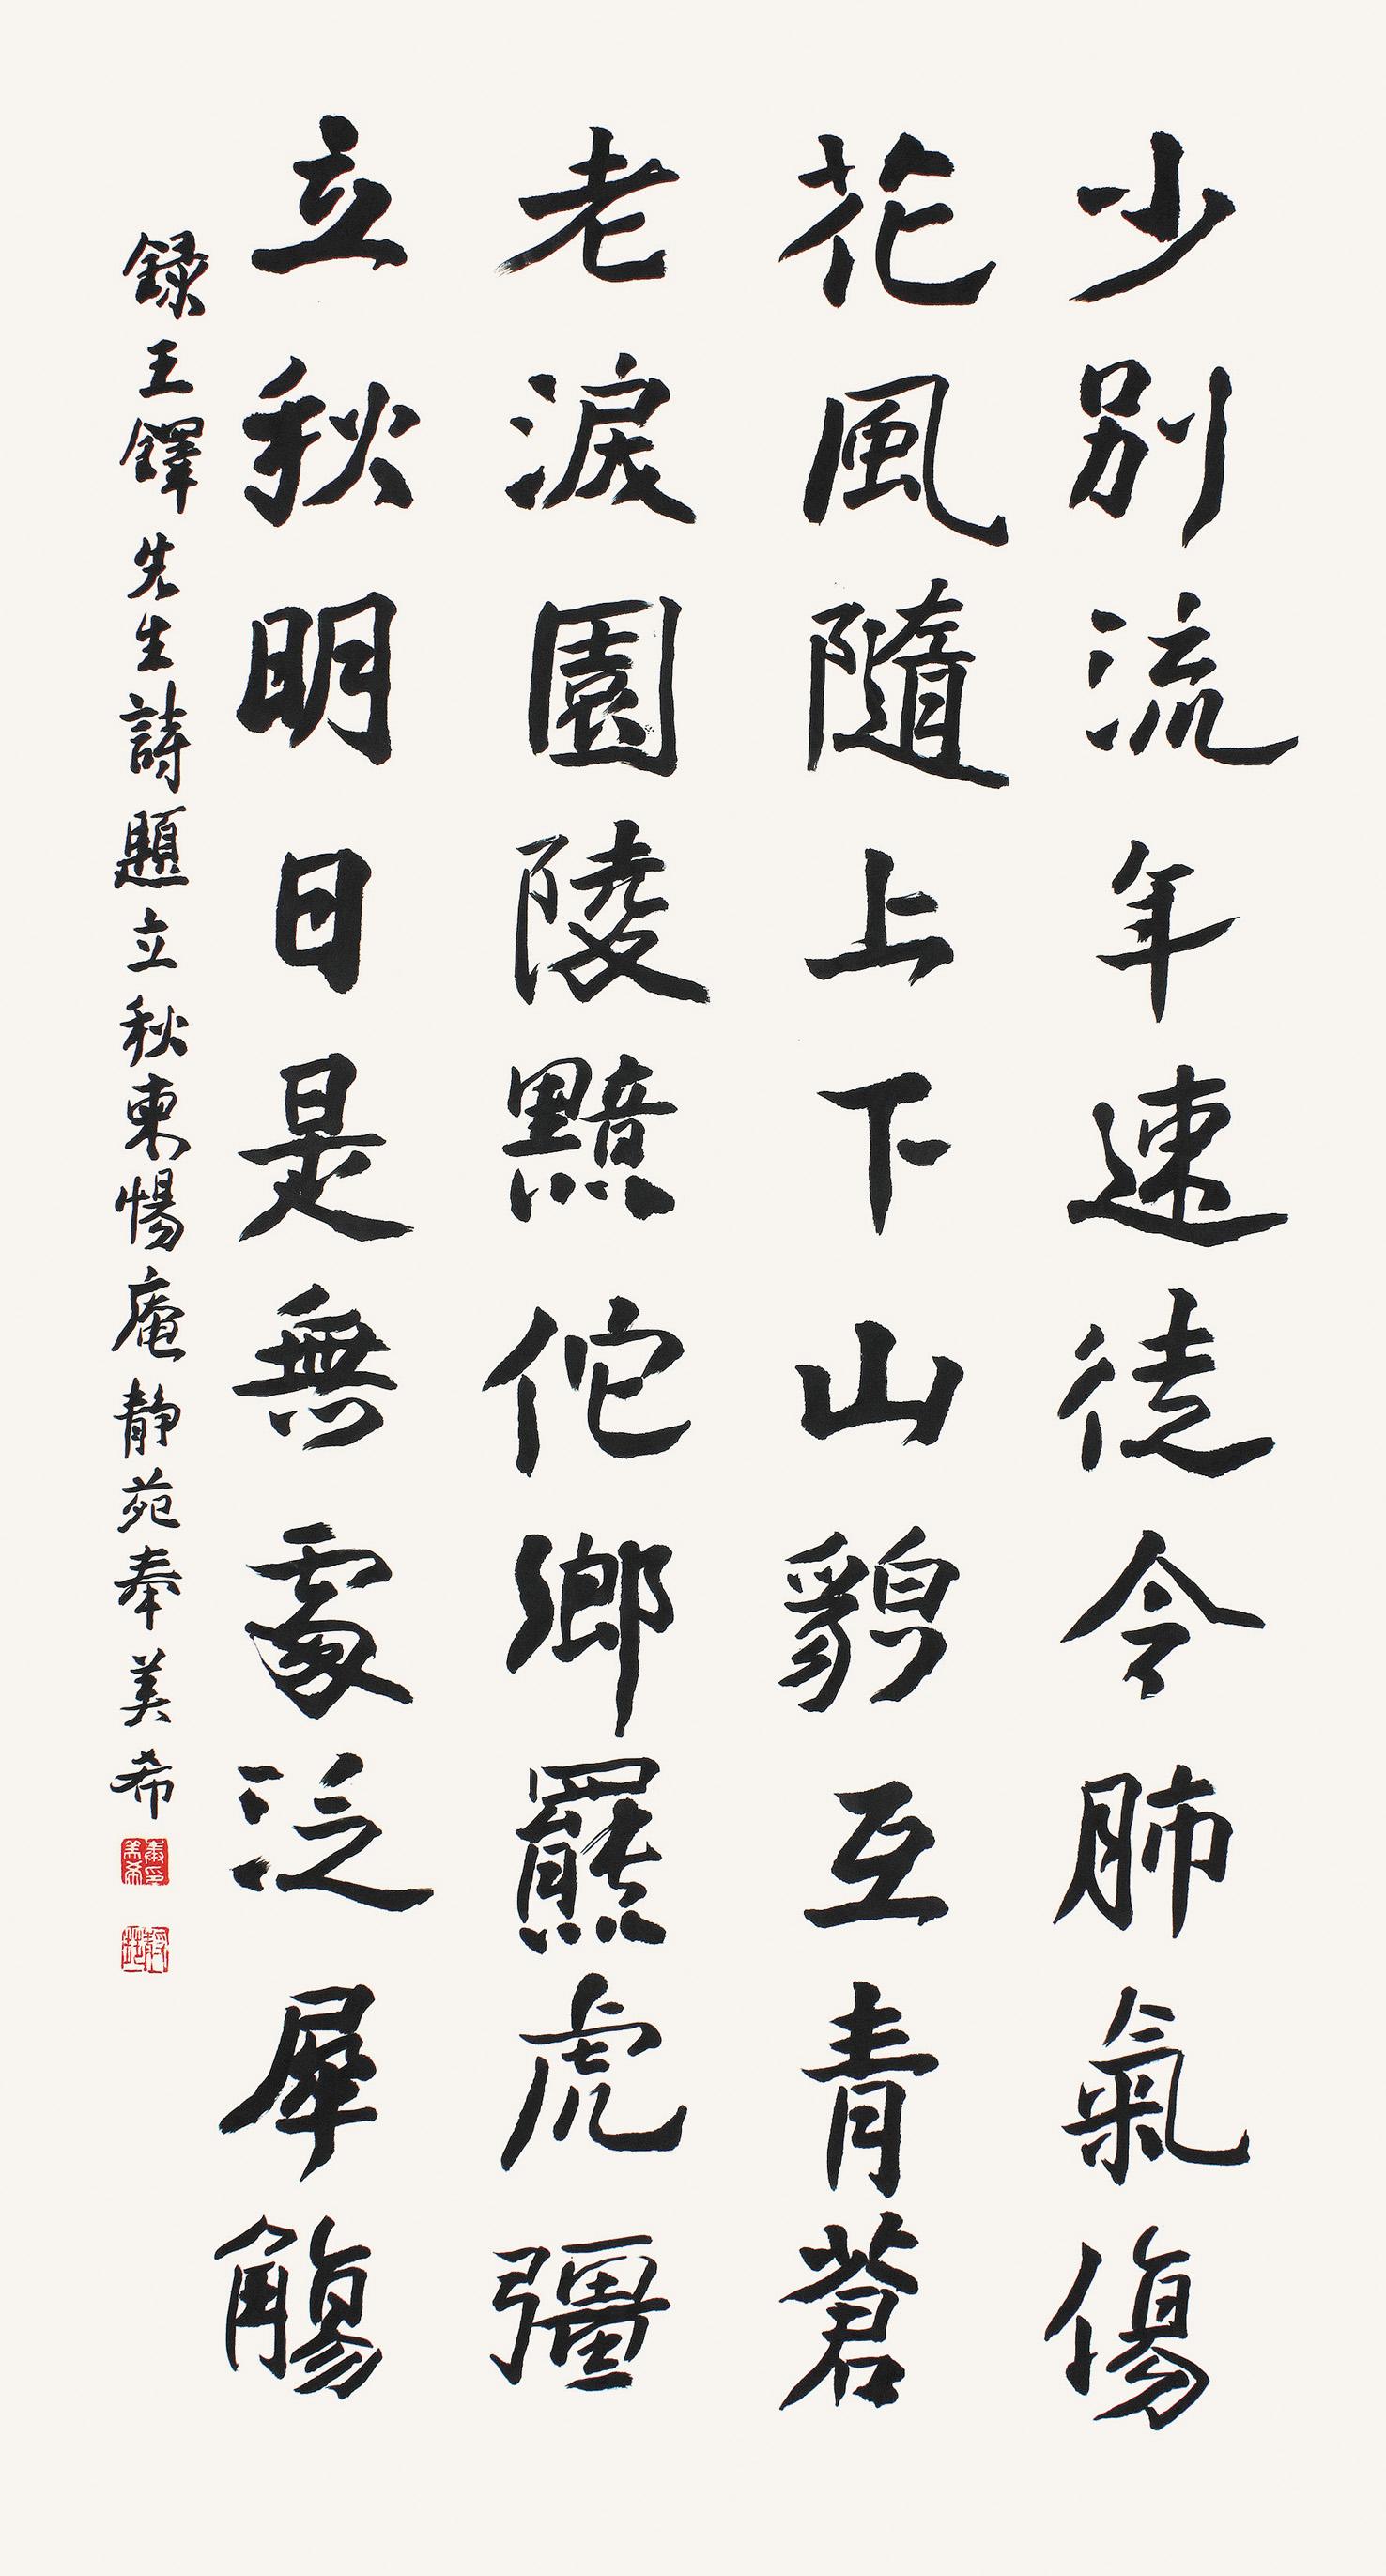 少別流年速徒令肺氣傷
花風隨上下山貌互青蒼
老淚園陵黯佗鄉羆虎彊
立秋明日是無處泛犀觴
錄王鐸先生詩題立秋柬惕庵靜苑奉美希